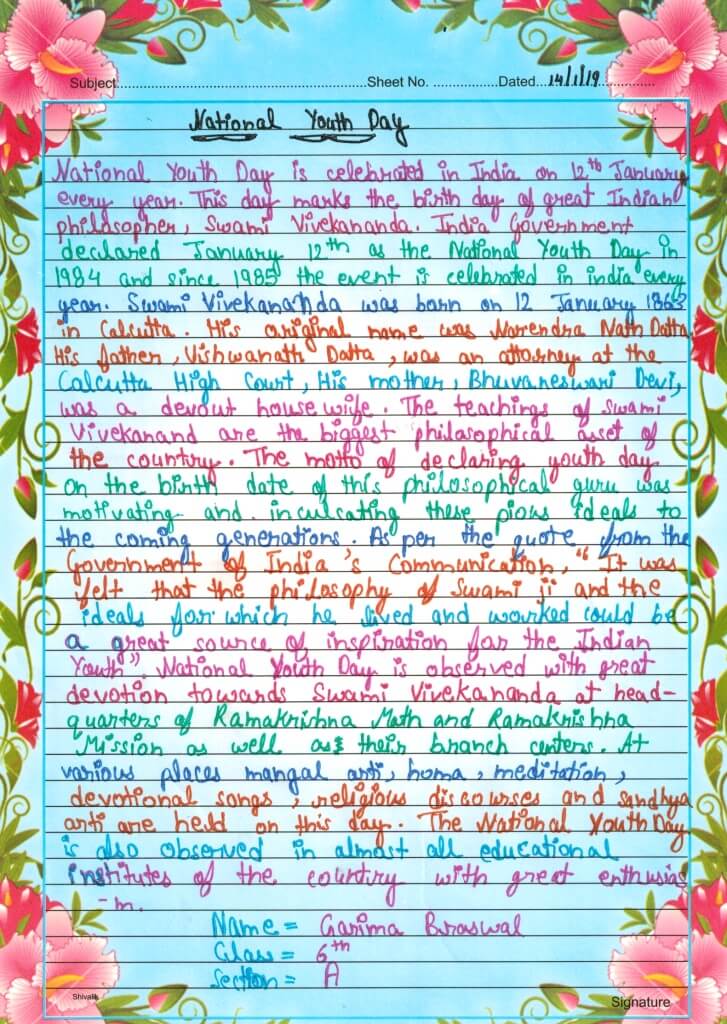 Subject.......................................Sheet No. ................Dated...14/1/19..............
National Youth Day
National Youth Day is celebrated in India on 12th January
every year. This day marks the birth day of great Indian
philosopher, Swami Vivekananda. India Government
declared January 12th as the National Youth Day in
1984 and since 1985 the event is celebrated in india every
year. Swami Vivekananda was born on 12 January 1863
in Calcutta. His original name was Narendra Nath Datta.
His father, Vishwanath Datta, was an attorney at the
Calcutta High Court, His mother, Bhuvaneswari Devi,
was a devout housewife. The teachings of Swami
Vivekanand are the biggest philosophical asset of
the country. The motto of declaring youth day
on the birth date of this philosophical guru was
motivating and inculcating these pious ideals to
the coming generations. As per the quote from the
Government of India's Communication, "It was
felt that the philosophy of Swami ji and the
ideals for which he lived and worked could be
a great source of inspiration for the Indian
Youth". National Youth Day is observed with great
devotion towards Swami Vivekananda at head-
quarters of Ramakrishna Math and Ramakrishna
Mission as well as their branch centers. At
various places mangal arti, homa, meditation,
devotional songs, religious discourses and sandhya
arti are held on this day. The National Youth Day
is also observed in almost all educational
institutes of the country with great enthusias
-m.
Name = Garima Braswal
Class = 6th
Section = A
Shivalik
Signature